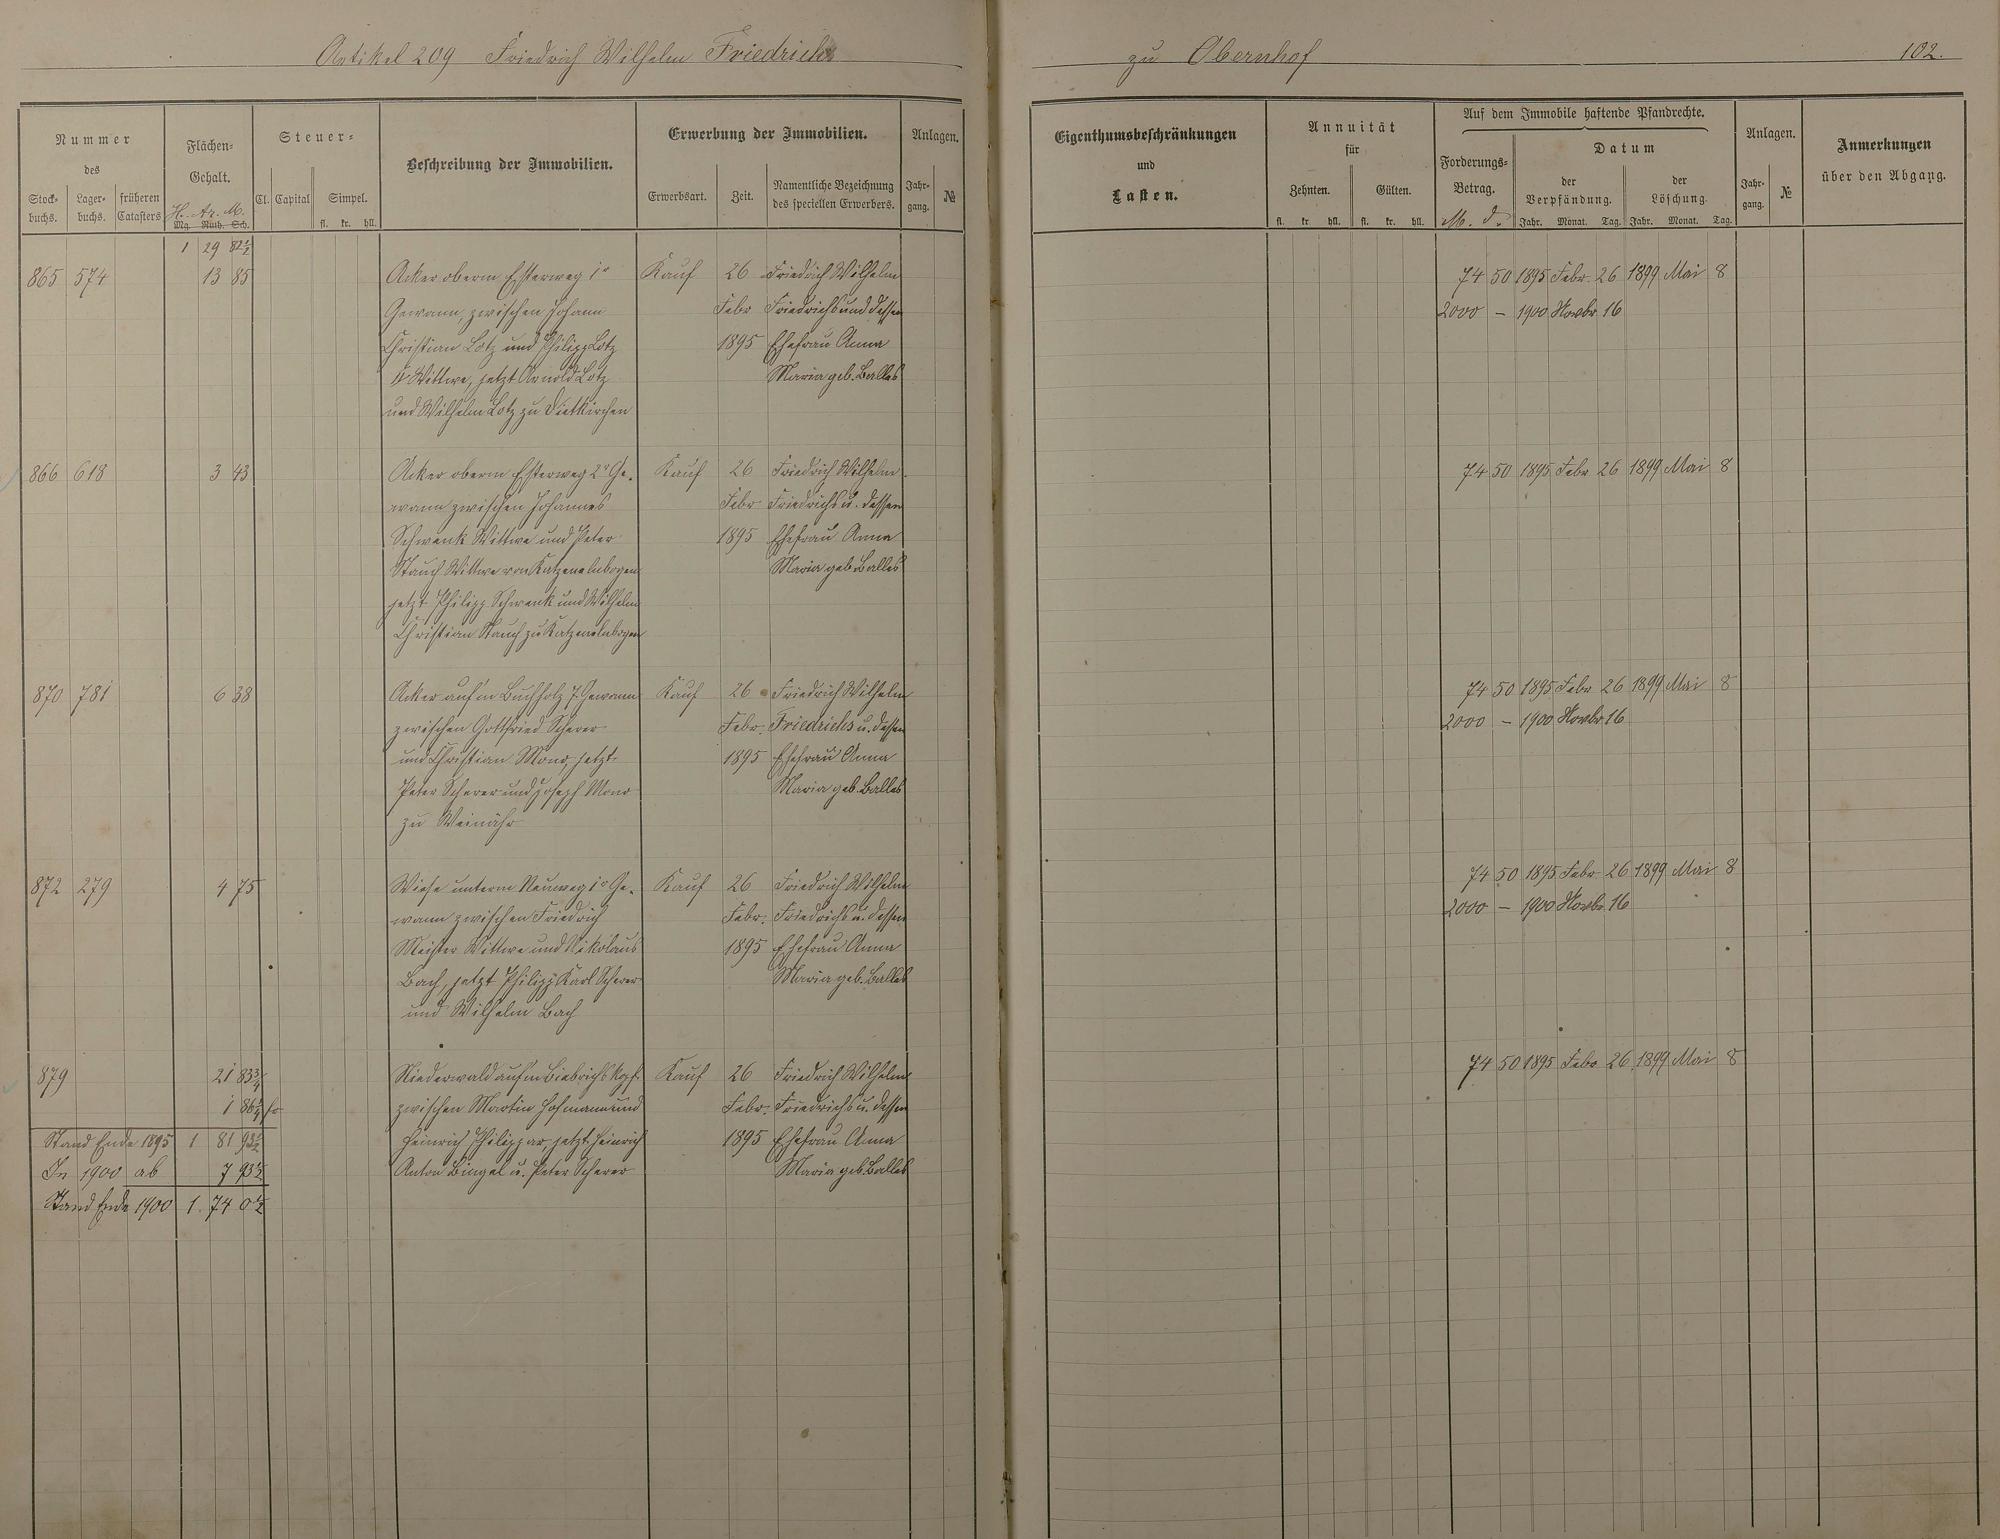 Artikel 209 Friedrich Wilhelm Friedrichs zu Obernhof 102.
Nummer
des
Stock-
buchs.
Lager-
buchs.
früheren
Catasters
Flächen-
Gehalt.
H. Ar. M.
Mg. Ruth. Sch.
Steuer-
Cl. Capital Simpel.
fl. kr. hll.
Beschreibung der Immobilien.
Erwerbung der Immobilien.
Erwerbsart. Zeit.
Namentliche Bezeichnung
des speciellen Erwerbers.
Anlagen.
Jahr-
gang.
№
Eigenthumsbeschränkungen
und
Lasten.
Annuität
für
Zehnten. Gülten.
fl. kr. hll. fl. kr. hll.
Auf dem Immobile haftende Pfandrechte.
Forderungs-
Betrag.
M. d.
Datum
der
Verpfändung.
Jahr. Monat. Tag.
der
Löschung.
Jahr. Monat. Tag.
Anlagen.
Jahr-
gang.
№
Anmerkungen
über den Abgang.
1 29 82½
865 574 13 85 Acker oberm Esterweg 1r Kauf 26 Friedrich Wilhelm 74 50 1895 Febr. 26 1899 Mai 8
Gewann, zwischen Johann Febr Friedrichs und dessen 2000 – 1900 Novbr 16
Christian Lotz und Philipp Lotz 1895 Ehefrau Anna
Wittwe, jetzt Arnold Lotz Maria geb. Balles
und Wilhelm Lotz zu Dietkirchen
866 618 3 43 Acker oberm Esterweg 2r Ge- Kauf 26 Friedrich Wilhelm 74 50 1895 Febr 26 1899 Mai 8
wann zwischen Johannes Febr Friedrichs u. dessen
Schwenk Wittwe und Peter 1895 Ehefrau Anna
Stauch Wittwe von Katzenelnbogen Maria geb. Balles
jetzt Philipp Schwenk und Wilhelm
Christian Stauch zu Katzenelnbogen
870 781 6 38 Acker auf'm Buchholz 7. Gewann Kauf 26 Friedrich Wilhelm 74 50 1895 Febr 26 1899 Mai 8
zwischen Gottfried Scherer Febr. Friedrichs u. dessen 2000 – 1900 Novbr 16
und Christian Mono, jetzt 1895 Ehefrau Anna
Peter Scherer und Joseph Mono Maria geb. Balles
zu Weinähr
872 279 4 75 Wiese unterm Neuweg 1r Ge- Kauf 26 Friedrich Wilhelm 74 50 1895 Febr 26 1899 Mai 8
wann zwischen Friedrich Febr. Friedrichs u. dessen 2000 – 1900 Novbr 16
Meister Wittwe und Nikolaus 1895 Ehefrau Anna
Bach, jetzt Philipp Karl Scherer Maria geb. Balles
und Wilhelm Bach
879 21 83¾ Niederwald auf'm Biebrichskopf Kauf 26 Friedrich Wilhelm 74 50 1895 Febr 26 1899 Mai 8
1 86¼ zwischen Martin Hofmann und Febr. Friedrichs u. dessen
Stand Ende 1895 1 81 93½ Heinrich jetzt Heinrich 1895 Ehefrau Anna
In 1900 ab 7 93½ Anton Bingel u. Peter Scherer Maria geb. Balles
Stand Ende 1900 1. 74 0½